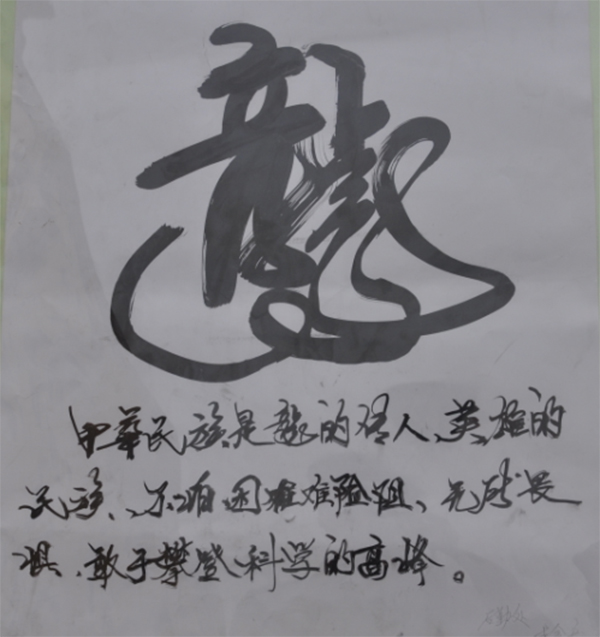 龍
中華民族是龍的傳人、英雄的
民族、不怕困難艱險阻、无所畏
惧、敢于攀登科学的高峰。